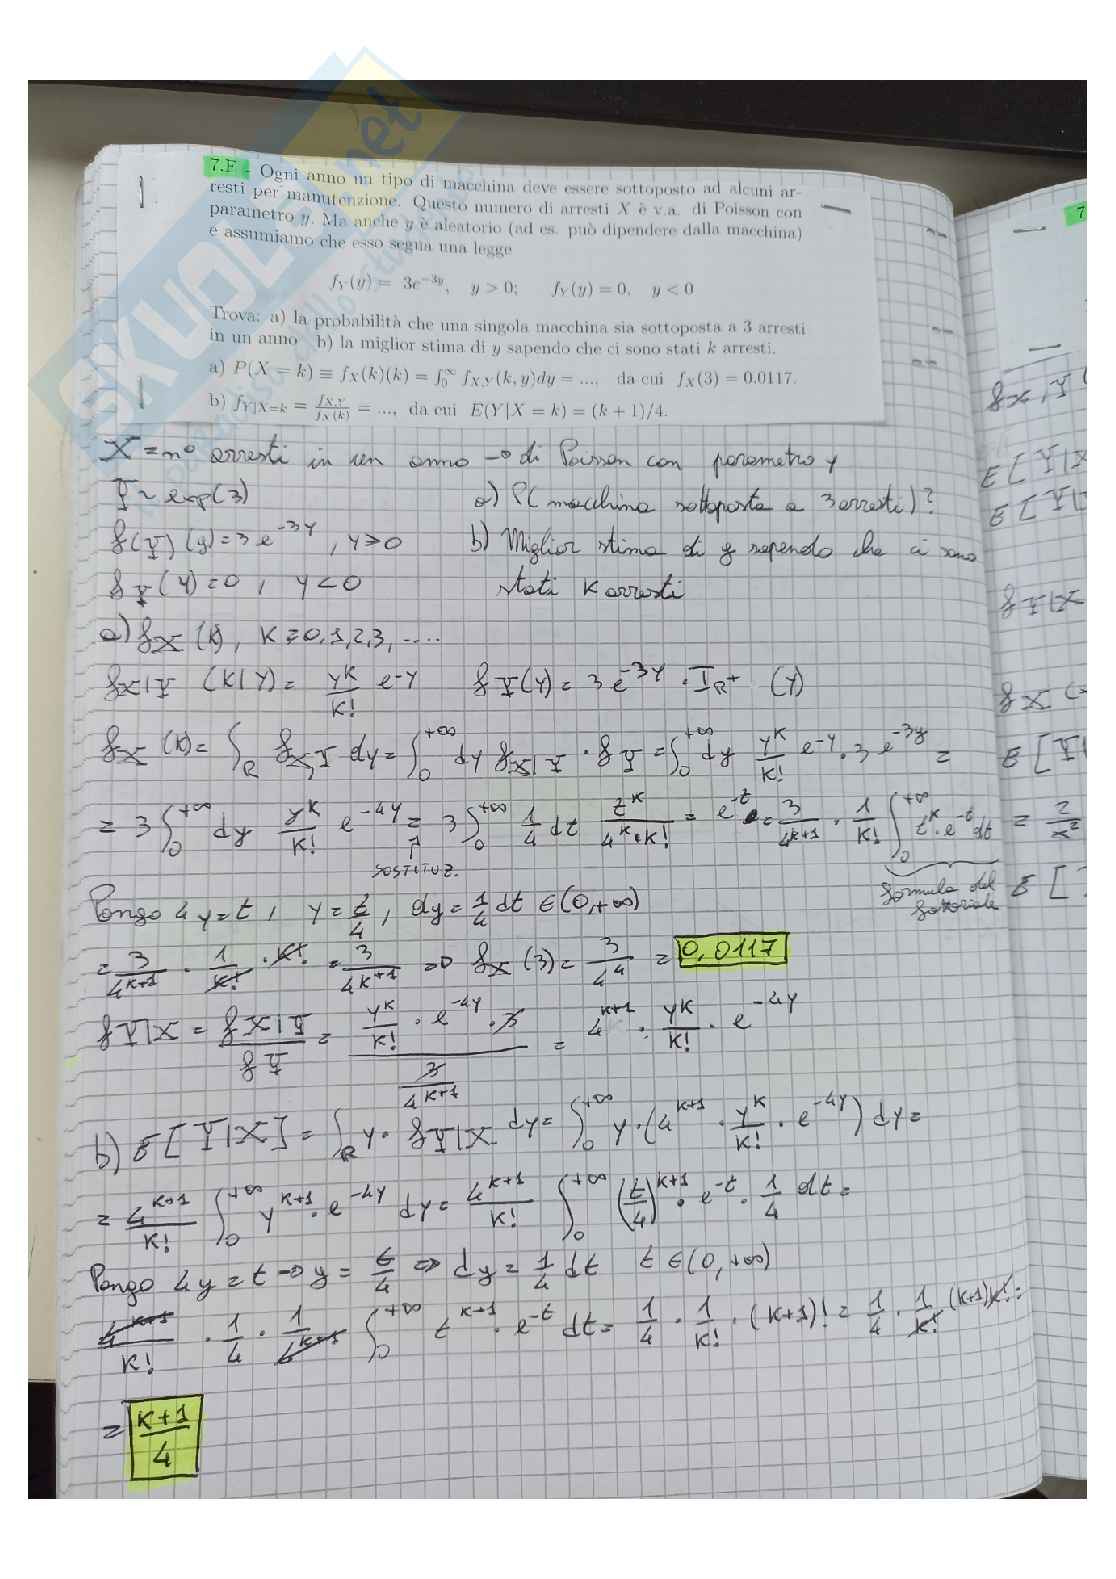 7.F - Ogni anno un tipo di macchina deve essere sottoposto ad alcuni ar-
resti per manutenzione. Questo numero di arresti X è v.a. di Poisson con
parametro y. Ma anche y è aleatorio (ad es. può dipendere dalla macchina)
e assumiamo che esso segua una legge
f_Y(y) = 3e^{-3y}, y > 0; f_Y(y) = 0, y < 0
Trova: a) la probabilità che una singola macchina sia sottoposta a 3 arresti
in un anno b) la miglior stima di y sapendo che ci sono stati k arresti.
a) P(X = k) ≡ f_X(k)(k) = ∫_0^∞ f_{X,Y}(k, y)dy = ..., da cui f_X(3) = 0.0117.
b) f_{Y|X=k} = f_{X,Y}/f_X(k) = ..., da cui E(Y|X = k) = (k + 1)/4.
X = n° arresti in un anno → di Poisson con parametro y
Y ~ exp(3) a) P(macchina sottoposta a 3 arresti)?
f(Y)(y) = 3e^{-3y}, y>0 b) Miglior stima di y sapendo che ci sono
f_Y(y) = 0, y<0 stati k arresti
a) f_X(k), k = 0,1,2,3, ....
f_{X|Y}(k|y) = y^k/k! e^{-y} f_Y(y) = 3e^{-3y} · I_{R^+}(y)
f_X(k) = ∫_R f_{X,Y} dy = ∫_0^{+∞} dy f_{X|Y} · f_Y = ∫_0^{+∞} dy y^k/k! e^{-y} · 3e^{-3y} =
= 3 ∫_0^{+∞} dy y^k/k! e^{-4y} = 3 ∫_0^{+∞} 1/4 dt t^k/(4^k · k!) = e^{-t} = 3/4^{k+1} · 1/k! ∫_0^{+∞} t^k · e^{-t} dt =
↑ SOSTITUZ. formula del fattoriale
Pongo 4y = t, y = t/4, dy = 1/4 dt ∈ (0,+∞)
= 3/4^{k+1} · 1/k! · k! = 3/4^{k+1} ⇒ f_X(3) = 3/4^4 = 0,0117
f_{Y|X} = f_{X|Y}/f_Y = (y^k/k! · e^{-4y} · 3)/(3/4^{k+1}) = 4^{k+1} · y^k/k! · e^{-4y}
b) E[Y|X] = ∫_R y · f_{Y|X} dy = ∫_0^{+∞} y · (4^{k+1} · y^k/k! · e^{-4y}) dy =
= 4^{k+1}/k! ∫_0^{+∞} y^{k+1} · e^{-4y} dy = 4^{k+1}/k! ∫_0^{+∞} (t/4)^{k+1} · e^{-t} · 1/4 dt =
Pongo 4y = t → y = t/4 ⇒ dy = 1/4 dt t ∈ (0,+∞)
4^{k+1}/k! · 1/4 · 1/4^{k+1} ∫_0^{+∞} t^{k+1} · e^{-t} dt = 1/4 · 1/k! · (k+1)! = 1/4 · 1/k! (k+1)k! =
= (k+1)/4